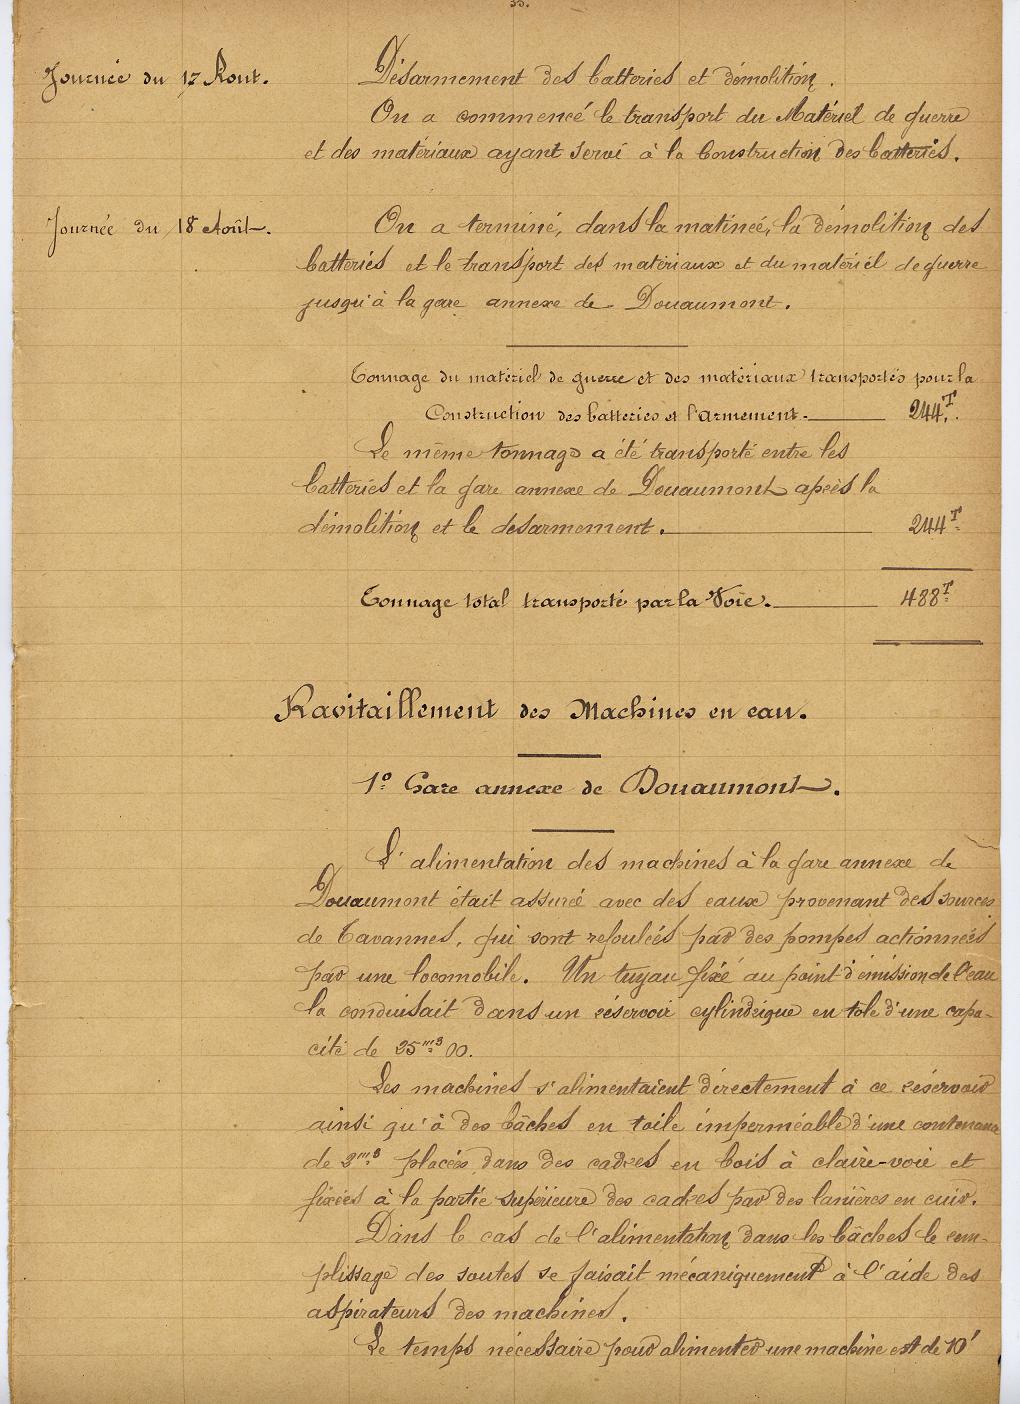 33.
Journée du 17 Août.
Désarmement des batteries et démolition.
On a commencé le transport du Matériel de guerre
et des matériaux ayant servi à la Construction des batteries.
Journée du 18 Août.
On a terminé, dans la matinée, la démolition des
batteries et le transport des matériaux et du matériel de guerre
jusqu'à la gare annexe de Douaumont.
Tonnage du matériel de guerre et des matériaux transportés pour la
Construction des batteries et l'armement. 244.T
Le même tonnage a été transporté entre les
batteries et la gare annexe de Douaumont après la
démolition et le désarmement. 244T
Tonnage total transporté par la Voie. 488T
Ravitaillement des Machines en eau.
1º Gare annexe de Douaumont.
L'alimentation des machines à la gare annexe de
Douaumont était assurée avec des eaux provenant des sources
de Tavannes, qui sont refoulées par des pompes actionnées
par une locomobile. Un tuyau fixé au point d'émission de l'eau
la conduisait dans un réservoir cylindrique en tole d'une capa-
cité de 25m3 00.
Les machines s'alimentaient directement à ce réservoir
ainsi qu'à des bâches en toile imperméable d'une contenance
de 2m3 placées dans des cadres en bois à claire-voie et
fixées à la partie supérieure des cadres par des lanières en cuir.
Dans le cas de l'alimentation dans les bâches le rem-
plissage des soutes se faisait mécaniquement à l'aide des
aspirateurs des machines.
Le temps nécessaire pour alimenter une machine est de 10'